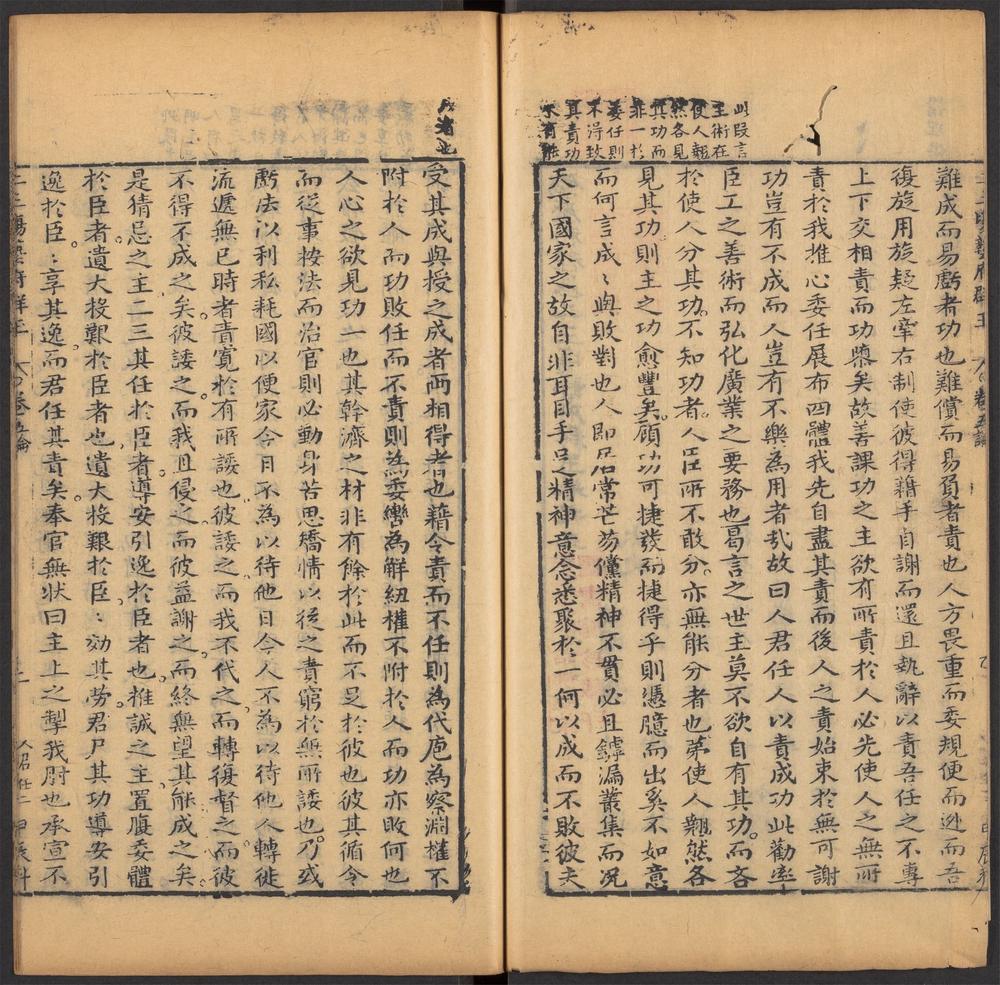 此段言
主術在
使人翹
然各見
其功而
非一於
委任則
不得致
其責功
難成而易虧者功也難償而易負者責也人方畏重而委規便而逊而吾
復旋用旋疑左牽右制使彼得藉手自謝而還且執辭以責吾任之不專
上下交相責而功隳矣故善課功之主欲有所責於人必先使人之無所
責於我推心委任展布四體我先自盡其責而後人之責始束於無可謝
功豈有不成而人豈有不樂為用者哉故曰人君任人以責成功此勸率
臣工之善術而弘化廣業之要務也曷言之世主莫不欲自有其功而吝
於使人分其功不知功者人臣所不敢分亦無能分者也苐使人翹然各
見其功則主之功愈豐矣顧功可捷發而捷得乎則憑臆而出奚不如意
而何言成成與敗對也人即居常芒芴儻精神不貫必且罅漏叢集而況
天下國家之故自非耳目手足精神意念悉聚於一何以成而不敗彼夫
受其成與授之成者兩相得者也藉令責而不任則為代庖為察淵權不
附於人而功敗任而不責則為委轡為解紐權不附於人而功亦敗何也
人心之欲見功一也其幹濟之材非有餘於此而不足於彼也彼其循令
而從事按法而治官則必動身苦思矯情以從之責窮於無所諉也乃或
虧法以利私耗國以便家今日不為以待他日今人不為以待他人轉徙
流遞無已時者責寬於有所諉也彼諉之而我不代之而轉復督之而彼
不得不成之矣彼諉之而我且侵之而彼益謝之而終無望其能成之矣
是猜忌之主二三其任於臣者導安引逸於臣者也推誠之主置腹委體
於臣者遺大投艱於臣者也遺大投艱於臣臣効其勞君尸其功導安引
逸於臣臣享其逸而君任其責矣奉官無狀曰主上之掣我肘也承宣不